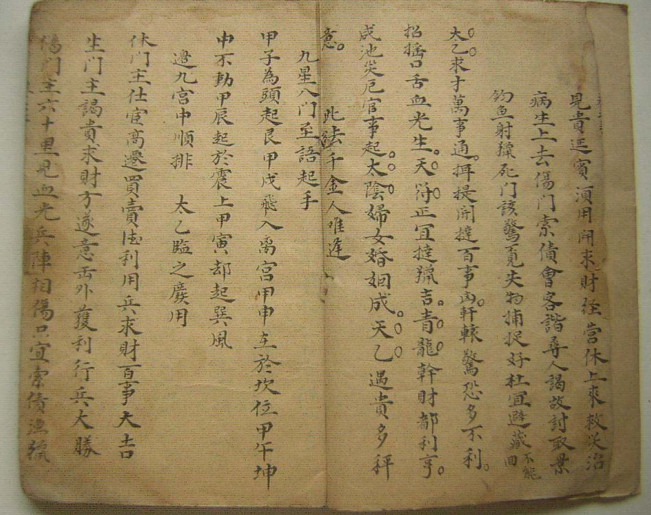 見貴迎賓須用開求財經營休上來救災治
病生上去傷門索債會客諧尋人謁故討取景
釣魚射獵死門該驚覓失物捕捉好杜宜避藏不能回
太乙求才萬事通。攝提開撻百事凶軒轅驚恐多不利。
招搖口舌血光生。天符正宜撻獵吉。青龍幹財都利亨。
咸池災厄官事起。太陰婦女婚姻成。天乙遇貴多秤
意。 此法千金人难逢
九星八门至語起手
甲子為頭起艮甲戌飛入离宮甲申主於坎位甲午坤
中不動甲辰起於震上甲寅却起巽風
遊九宮中順排 太乙臨之廢用
休门主仕宦高遷買賣法利用兵求財百事大吉
生门主謁貴求財方遂意出外獲利行兵大勝
傷门主六十里見血光兵陣相傷只宜索債漁獵